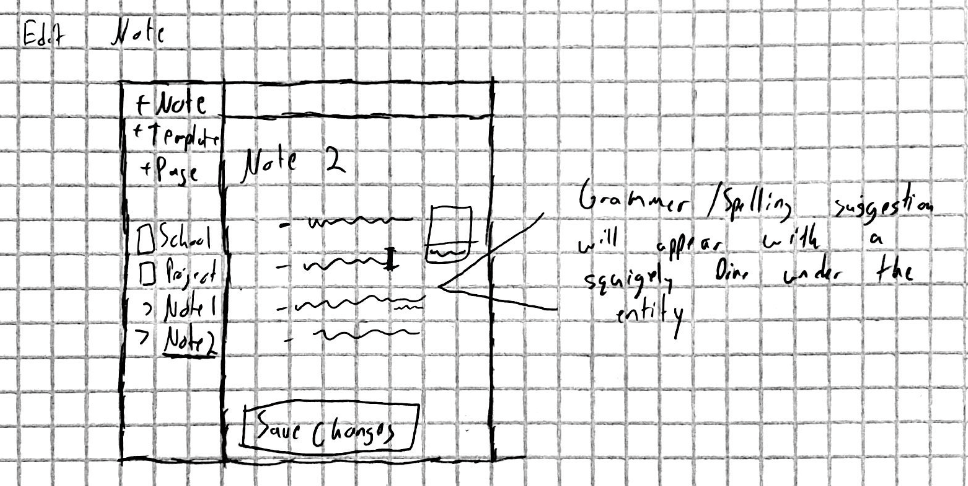 Edit Note
+ Note
+ Template
+ Page
School
Project
> Note 1
> Note 2
Note 2
Save Changes
Grammer / Spelling suggestion
will appear with a
squigely line under the
entity